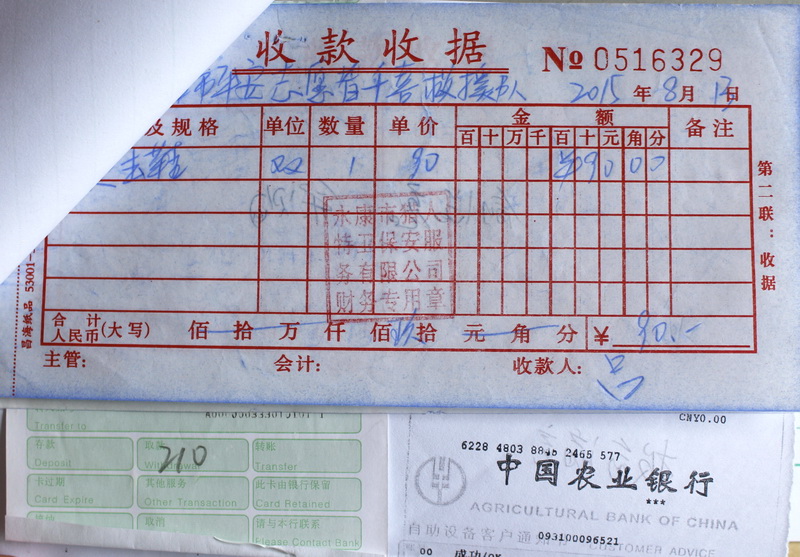 收款收据 № 0516329
市平安志愿者平喜救援队 2015年8月13日
及规格 单位 数量 单价 金额 备注
百 十 万 千 百 十 元 角 分
击鞋 双 1 90 ¥ 9 0 0 0
永康市猎人
特卫保安服
务有限公司
财务专用章
合计
人民币(大写) 佰 拾 万 仟 佰 玖 拾 元 角 分 ¥ 90.-
主管: 会计: 收款人: 吕
第二联:收据
昌海纸品 53001-
Transfer to
存款 取款 转账
Deposit Withdrawal Transfer
210
卡过期 其他服务 此卡由银行保留
Card Expire Other Transaction Card Retained
取消 请与本行联系
Please Contact Bank
CNY0.00
6228 4803 8846 2465 577
中国农业银行
***
AGRICULTURAL BANK OF CHINA
093100096521
自助设备客户通知书 CUSTOMER ADVICE
00 成功/OK